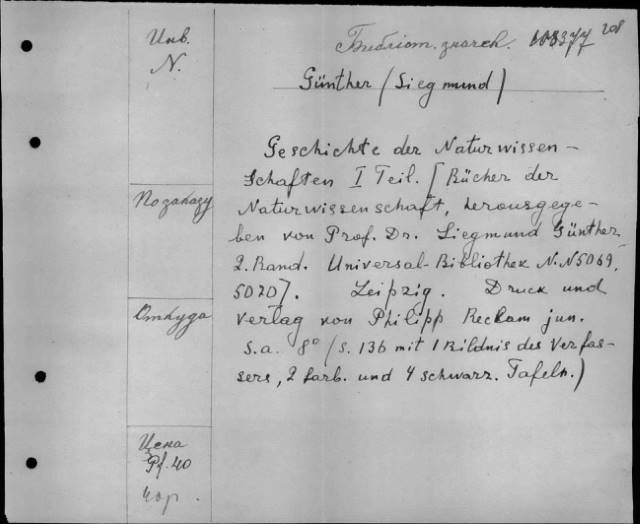 Инв.
N.
Библиот. знатей. 108377 208
Günther (Siegmund)
Geschichte der Naturwissen-
schaften I Teil. [Bücher der
Naturwissenschaft, herousgege-
ben von Prof. Dr. Siegmund Günther,
2. Band. Universal-Bibliothek N.N5069,
5070]. Leipzig. Druck und
Verlag von Philipp Reclam jun.
S.a. 8° (S. 136 mit 1 Bildnis des Verfas-
sers, 2 farb. und 4 schwarz. Tafeln.)
По заказу
Откуда
Цена
Pf. 40
кор.